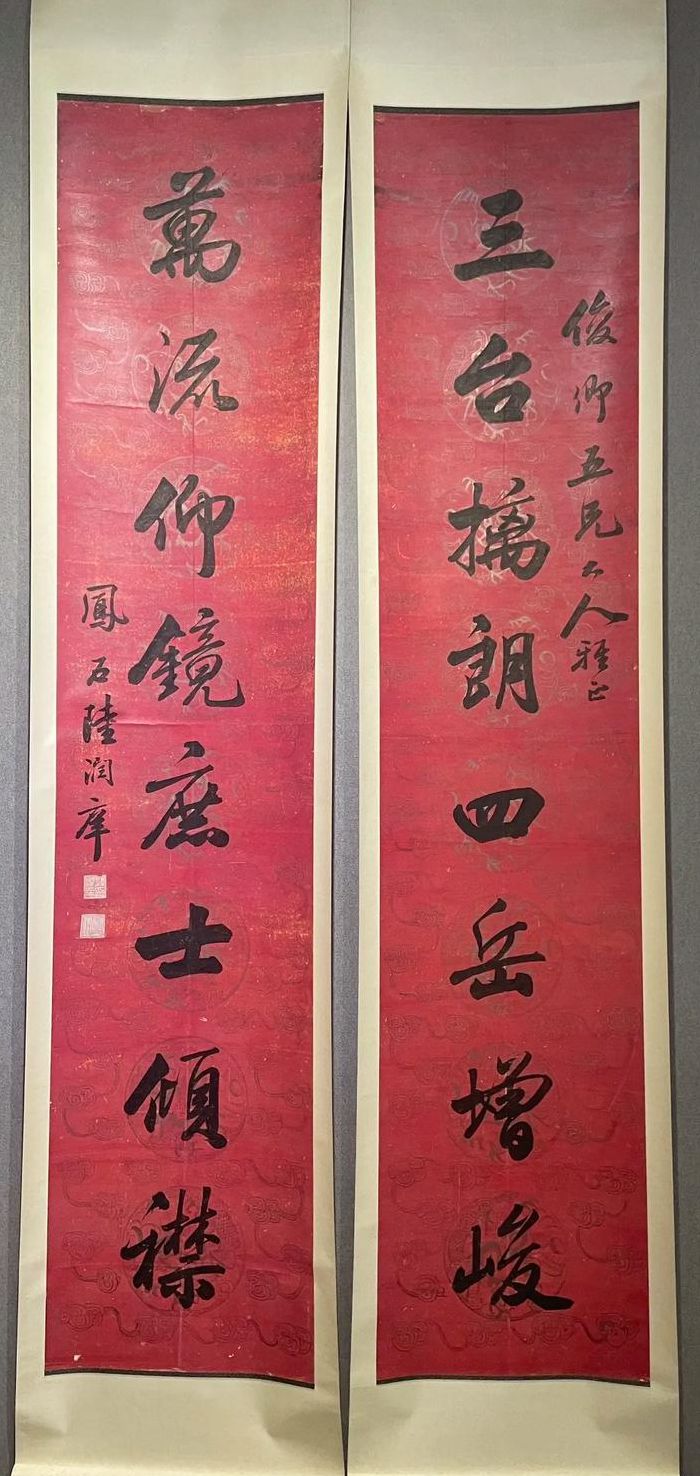 三台摛朗四岳增峻
俊卿五兄大人雅正
萬流仰鏡庶士傾襟
鳳石陸潤庠